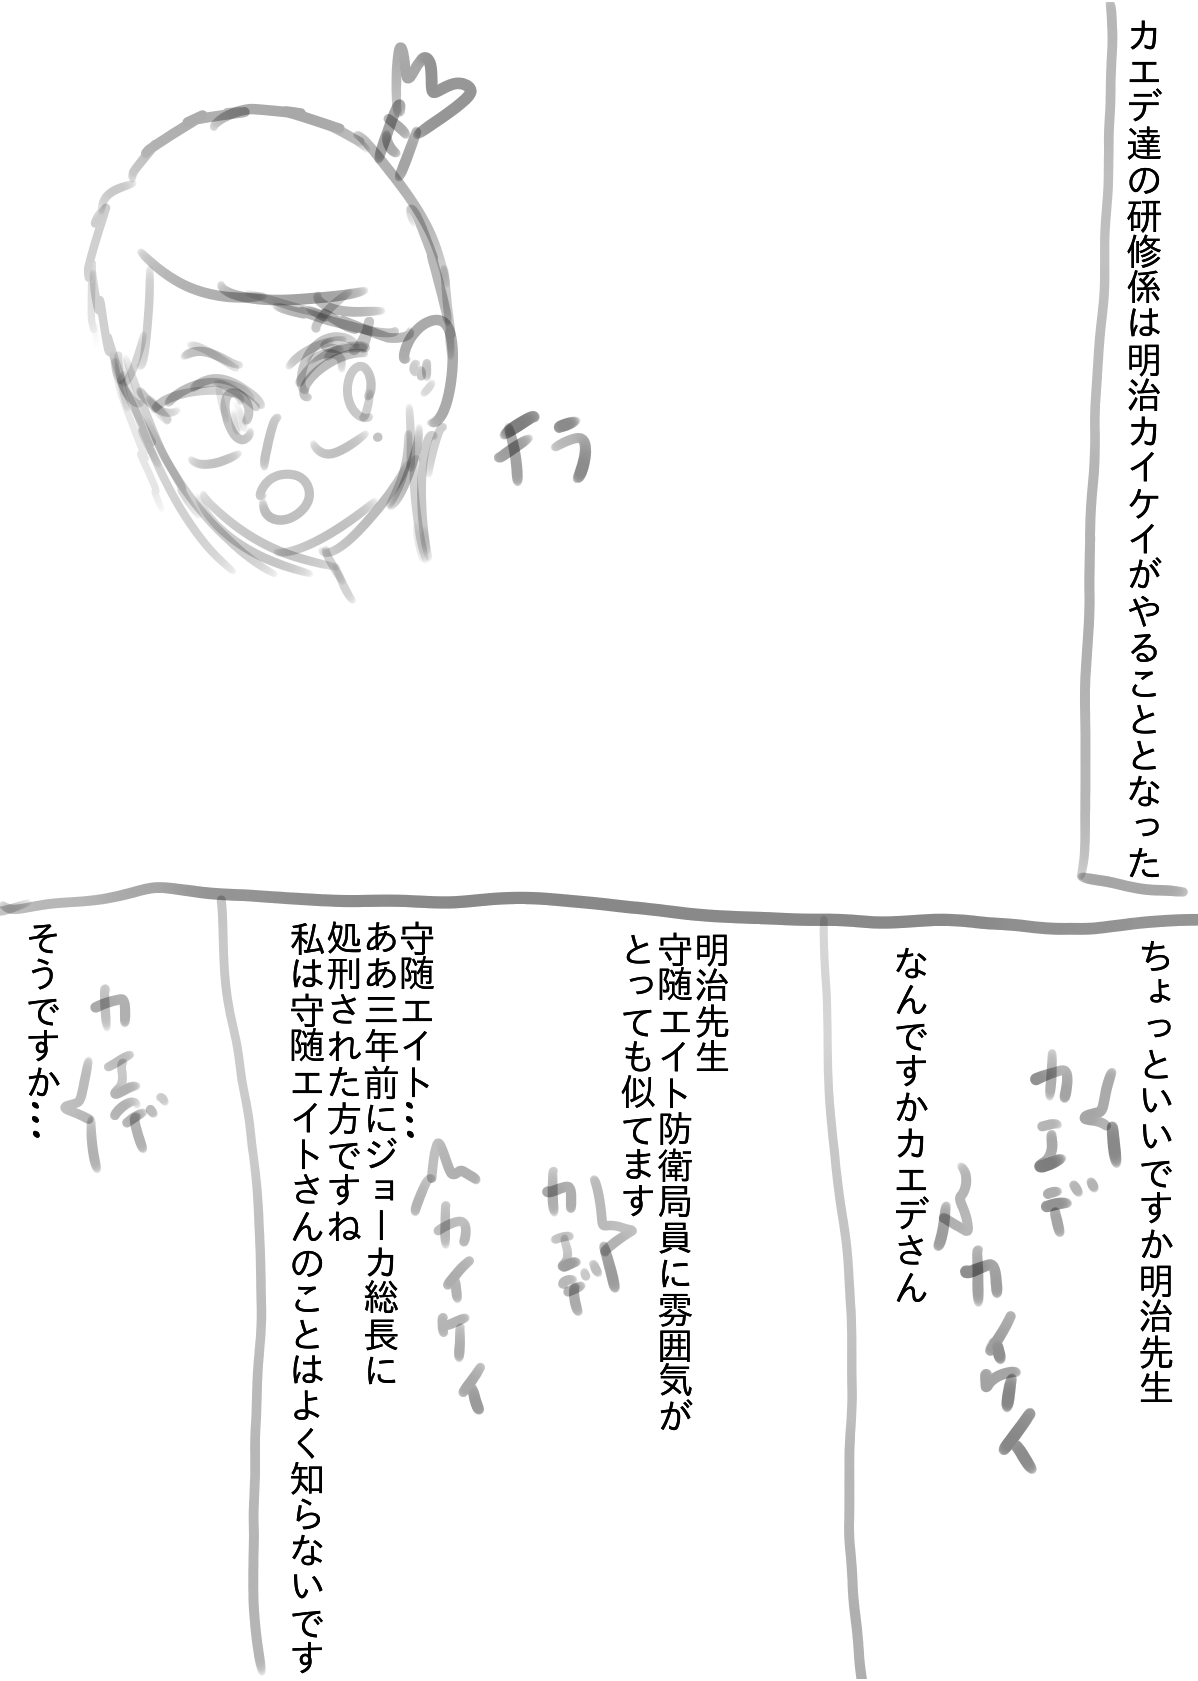 カエデ達の研修係は明治カイケイがやることとなった
チラ
ちょっといいですか明治先生
カエデ
なんですかカエデさん
カイケイ
明治先生
守随エイト防衛局員に雰囲気が
とっても似てます
カエデ
守随エイト…
ああ三年前にジョーカ総長に
処刑された方ですね
私は守随エイトさんのことはよく知らないです
カイケイ
カエデ
そうですか…